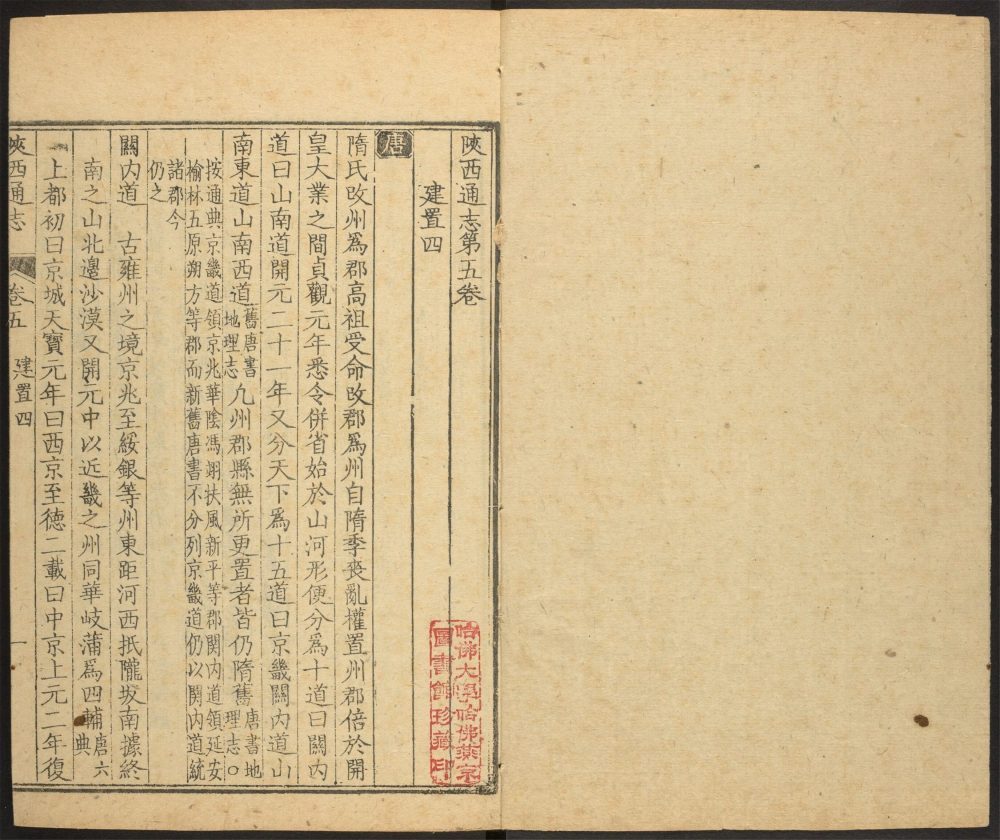 陝西通志第五卷
建置四
唐
隋氏改州爲郡高祖受命改郡爲州自隋季喪亂權置州郡倍於開
皇大業之間貞觀元年悉令併省始於山河形便分爲十道曰關内
道曰山南道開元二十一年又分天下爲十五道曰京畿關内道山
南東道山南西道舊唐書地理志九州郡縣無所更置者皆仍隋舊唐書地理志○
按通典京畿道領京兆華陰馮翊扶風新平等郡関内道領延安
榆林五原朔方等郡而新舊唐書不分列京畿道仍以関内道統
諸郡今
仍之
關内道 古雍州之境京兆至綏銀等州東距河西抵隴坂南據終
南之山北邊沙漠又開元中以近畿之州同華岐蒲爲四輔唐六典
上都初曰京城天寶元年曰西京至德二載曰中京上元二年復
陝西通志 卷五 建置四 一
哈佛大學哈佛燕京
圖書館珍藏印